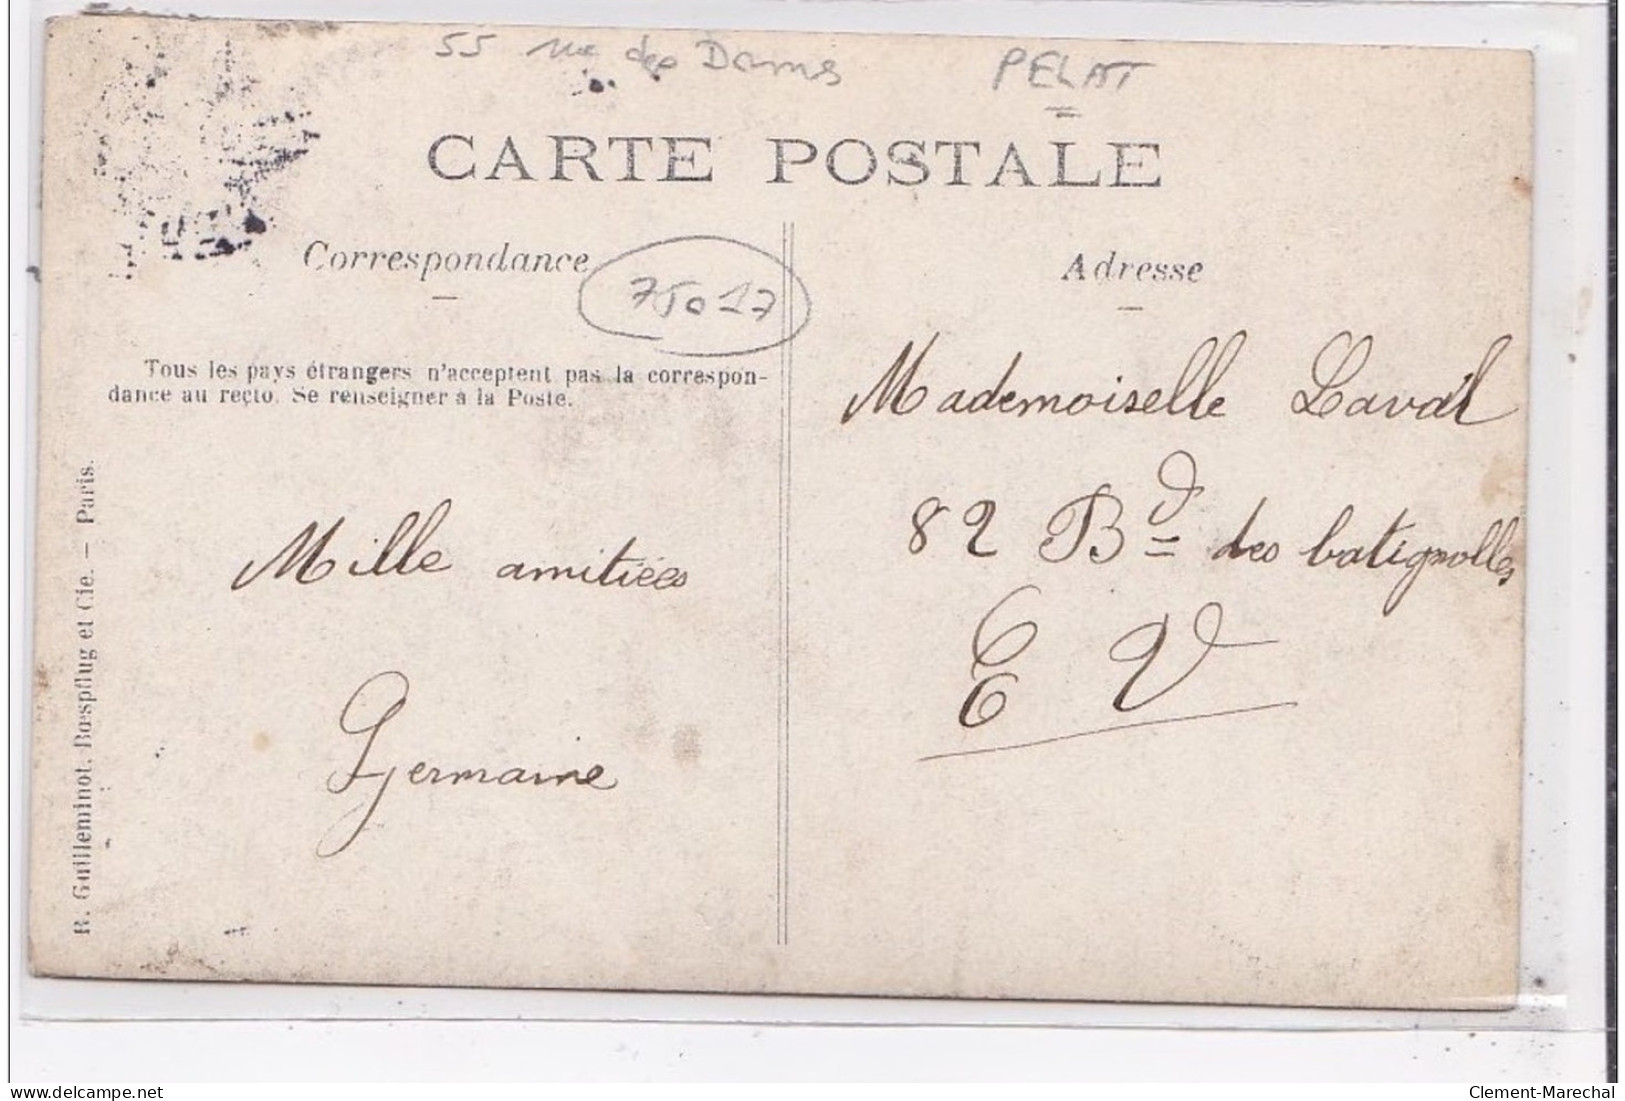 55 rue des Dames PELAT
CARTE POSTALE
Correspondance
75017
Adresse
Tous les pays étrangers n'acceptent pas la correspon-
dance au recto. Se renseigner à la Poste.
R. Guilleminot, Bœspflug et Cie. — Paris.
Mille amitiées
Germaine
Mademoiselle Laval
82 Bd des batignolles
E V
delcampe.net
Clement-Marechal